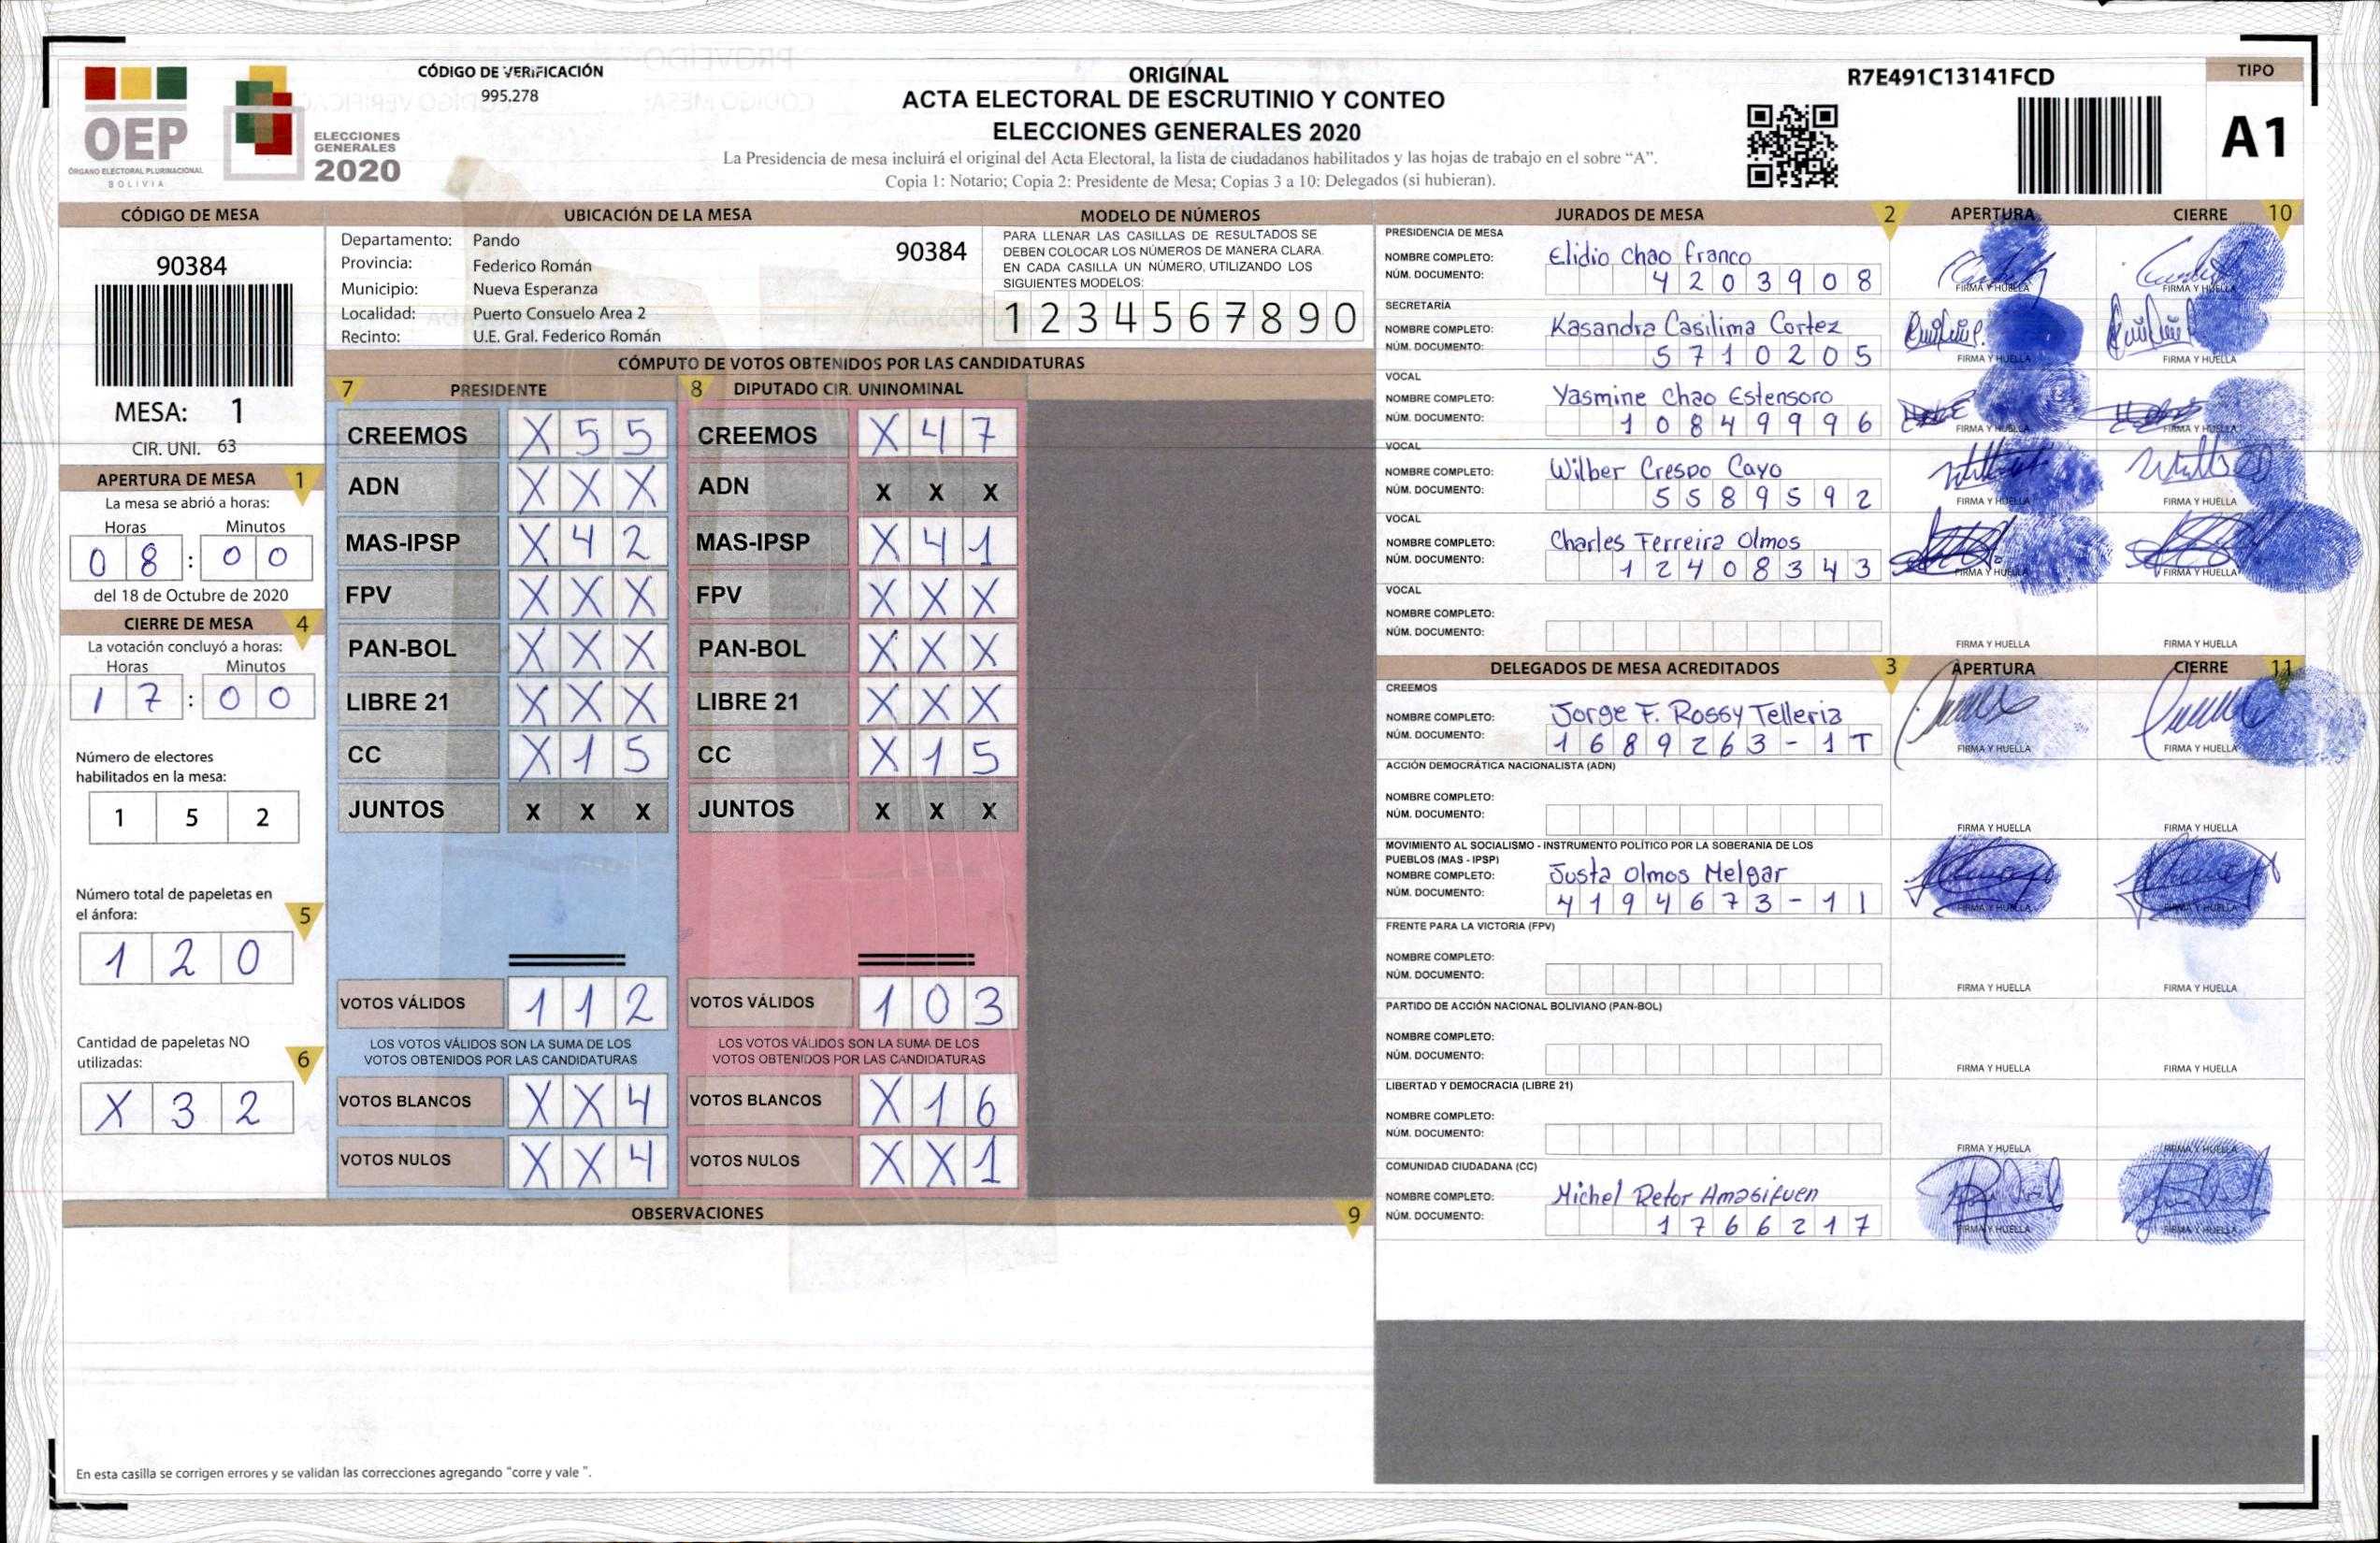 OEP
ÓRGANO ELECTORAL PLURINACIONAL
BOLIVIA
ELECCIONES
GENERALES
2020
CÓDIGO DE VERIFICACIÓN
995.278
ORIGINAL
ACTA ELECTORAL DE ESCRUTINIO Y CONTEO
ELECCIONES GENERALES 2020
La Presidencia de mesa incluirá el original del Acta Electoral, la lista de ciudadanos habilitados y las hojas de trabajo en el sobre “A”.
Copia 1: Notario; Copia 2: Presidente de Mesa; Copias 3 a 10: Delegados (si hubieran).
R7E491C13141FCD
TIPO
A1
CÓDIGO DE MESA
90384
MESA: 1
CIR. UNI. 63
APERTURA DE MESA 1
La mesa se abrió a horas:
Horas Minutos
0 8 : 0 0
del 18 de Octubre de 2020
CIERRE DE MESA 4
La votación concluyó a horas:
Horas Minutos
1 7 : 0 0
Número de electores
habilitados en la mesa:
1 5 2
Número total de papeletas en
el ánfora: 5
1 2 0
Cantidad de papeletas NO
utilizadas: 6
X 3 2
UBICACIÓN DE LA MESA
Departamento: Pando 90384
Provincia: Federico Román
Municipio: Nueva Esperanza
Localidad: Puerto Consuelo Area 2
Recinto: U.E. Gral. Federico Román
MODELO DE NÚMEROS
PARA LLENAR LAS CASILLAS DE RESULTADOS SE
DEBEN COLOCAR LOS NÚMEROS DE MANERA CLARA.
EN CADA CASILLA UN NÚMERO, UTILIZANDO LOS
SIGUIENTES MODELOS:
1 2 3 4 5 6 7 8 9 0
CÓMPUTO DE VOTOS OBTENIDOS POR LAS CANDIDATURAS
7 PRESIDENTE 8 DIPUTADO CIR. UNINOMINAL
CREEMOS X 5 5 CREEMOS X 4 7
ADN X X X ADN X X X
MAS-IPSP X 4 2 MAS-IPSP X 4 1
FPV X X X FPV X X X
PAN-BOL X X X PAN-BOL X X X
LIBRE 21 X X X LIBRE 21 X X X
CC X 1 5 CC X 1 5
JUNTOS X X X JUNTOS X X X
VOTOS VÁLIDOS 1 1 2 VOTOS VÁLIDOS 1 0 3
LOS VOTOS VÁLIDOS SON LA SUMA DE LOS LOS VOTOS VÁLIDOS SON LA SUMA DE LOS
VOTOS OBTENIDOS POR LAS CANDIDATURAS VOTOS OBTENIDOS POR LAS CANDIDATURAS
VOTOS BLANCOS X X 4 VOTOS BLANCOS X 1 6
VOTOS NULOS X X 4 VOTOS NULOS X X 1
OBSERVACIONES 9
En esta casilla se corrigen errores y se validan las correcciones agregando “corre y vale ”.
JURADOS DE MESA 2 APERTURA CIERRE 10
PRESIDENCIA DE MESA
NOMBRE COMPLETO: Elidio Chao Franco
NÚM. DOCUMENTO: 4 2 0 3 9 0 8
FIRMA Y HUELLA FIRMA Y HUELLA
SECRETARÍA
NOMBRE COMPLETO: Kasandra Casilima Cortez
NÚM. DOCUMENTO: 5 7 1 0 2 0 5
FIRMA Y HUELLA FIRMA Y HUELLA
VOCAL
NOMBRE COMPLETO: Yasmine Chao Estensoro
NÚM. DOCUMENTO: 1 0 8 4 9 9 9 6
FIRMA Y HUELLA FIRMA Y HUELLA
VOCAL
NOMBRE COMPLETO: Wilber Crespo Cayo
NÚM. DOCUMENTO: 5 5 8 9 5 9 2
FIRMA Y HUELLA FIRMA Y HUELLA
VOCAL
NOMBRE COMPLETO: Charles Ferreira Olmos
NÚM. DOCUMENTO: 1 2 4 0 8 3 4 3
FIRMA Y HUELLA FIRMA Y HUELLA
VOCAL
NOMBRE COMPLETO:
NÚM. DOCUMENTO:
FIRMA Y HUELLA FIRMA Y HUELLA
DELEGADOS DE MESA ACREDITADOS 3 APERTURA CIERRE 11
CREEMOS
NOMBRE COMPLETO: Jorge F. Rossy Telleria
NÚM. DOCUMENTO: 1 6 8 9 2 6 3 - 1 T
FIRMA Y HUELLA FIRMA Y HUELLA
ACCIÓN DEMOCRÁTICA NACIONALISTA (ADN)
NOMBRE COMPLETO:
NÚM. DOCUMENTO:
FIRMA Y HUELLA FIRMA Y HUELLA
MOVIMIENTO AL SOCIALISMO - INSTRUMENTO POLÍTICO POR LA SOBERANIA DE LOS
PUEBLOS (MAS - IPSP)
NOMBRE COMPLETO: Justa Olmos Melgar
NÚM. DOCUMENTO: 4 1 9 4 6 7 3 - 1 1
FIRMA Y HUELLA FIRMA Y HUELLA
FRENTE PARA LA VICTORIA (FPV)
NOMBRE COMPLETO:
NÚM. DOCUMENTO:
FIRMA Y HUELLA FIRMA Y HUELLA
PARTIDO DE ACCIÓN NACIONAL BOLIVIANO (PAN-BOL)
NOMBRE COMPLETO:
NÚM. DOCUMENTO:
FIRMA Y HUELLA FIRMA Y HUELLA
LIBERTAD Y DEMOCRACIA (LIBRE 21)
NOMBRE COMPLETO:
NÚM. DOCUMENTO:
FIRMA Y HUELLA FIRMA Y HUELLA
COMUNIDAD CIUDADANA (CC)
NOMBRE COMPLETO: Michel Retor Amasifuen
NÚM. DOCUMENTO: 1 7 6 6 2 1 7
FIRMA Y HUELLA FIRMA Y HUELLA